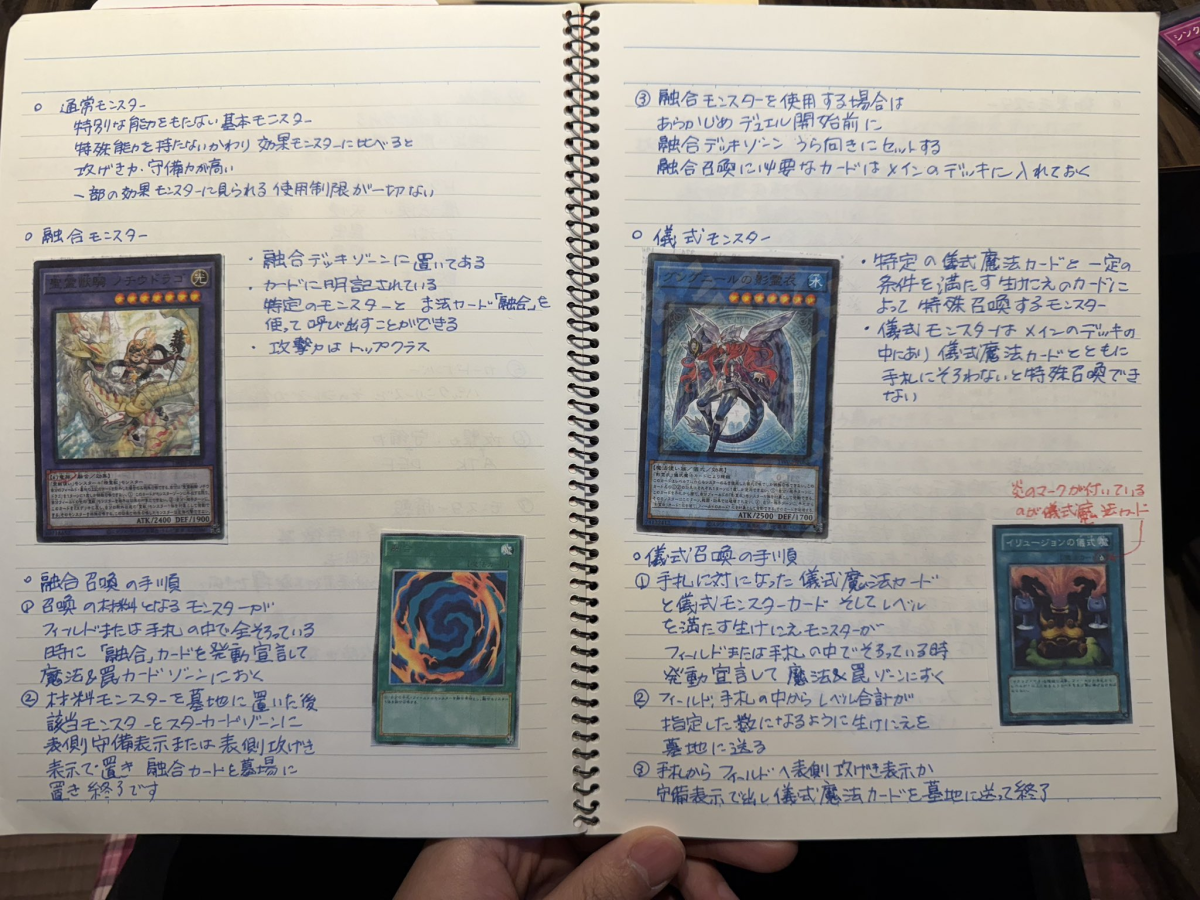 ○ 通常モンスター
特別な能力をもたない基本モンスター
特殊能力を持たないかわり 効果モンスターに比べると
攻げき力・守備力が高い
一部の効果モンスターに見られる使用制限が一切ない
○ 融合モンスター
聖霊獣騎 ノチウドラゴ
光
ATK/2400 DEF/1900
・融合デッキゾーンに置いてある
・カードに明記されている
特定のモンスターと まほうカード「融合」を
使って呼び出すことができる
・攻撃力はトップクラス
○ 融合召喚の手順
① 召喚の材料となるモンスターが
フィールドまたは手札の中で全そろっている
時に「融合」カードを発動宣言して
魔法&罠カードゾーンにおく
② 材料モンスターを墓地に置いた後
該当モンスターをスターカードゾーンに
表側守備表示または表側攻げき
表示で置き 融合カードを墓場に
置き終了です
③ 融合モンスターを使用する場合は
あらかじめデュエル開始前に
融合デッキゾーン うら向きにセットする
融合召喚に必要なカードはメインのデッキに入れておく
○ 儀式モンスター
ブンシュールの影霊衣
水
ATK/2500 DEF/1700
・特定の儀式魔法カードと一定の
条件を満たす生けにえのカードに
よって特殊召喚するモンスター
・儀式モンスターはメインのデッキの
中にあり儀式魔法カードとともに
手札にそろわないと特殊召喚でき
ない
炎のマークが付いている
のが儀式魔法カード
イリュージョンの儀式
○ 儀式召喚の手順
① 手札に対になった儀式魔法カード
と儀式モンスターカード そしてレベル
を満たす生けにえモンスターが
フィールドまたは手札の中でそろっている時
発動宣言して魔法&罠ゾーンにおく
② フィールド、手札の中からレベル合計が
指定した数になるように生けにえを
墓地に送る
③ 手札からフィールドへ表側攻げき表示か
守備表示で出し儀式魔法カードを墓地に送って終了